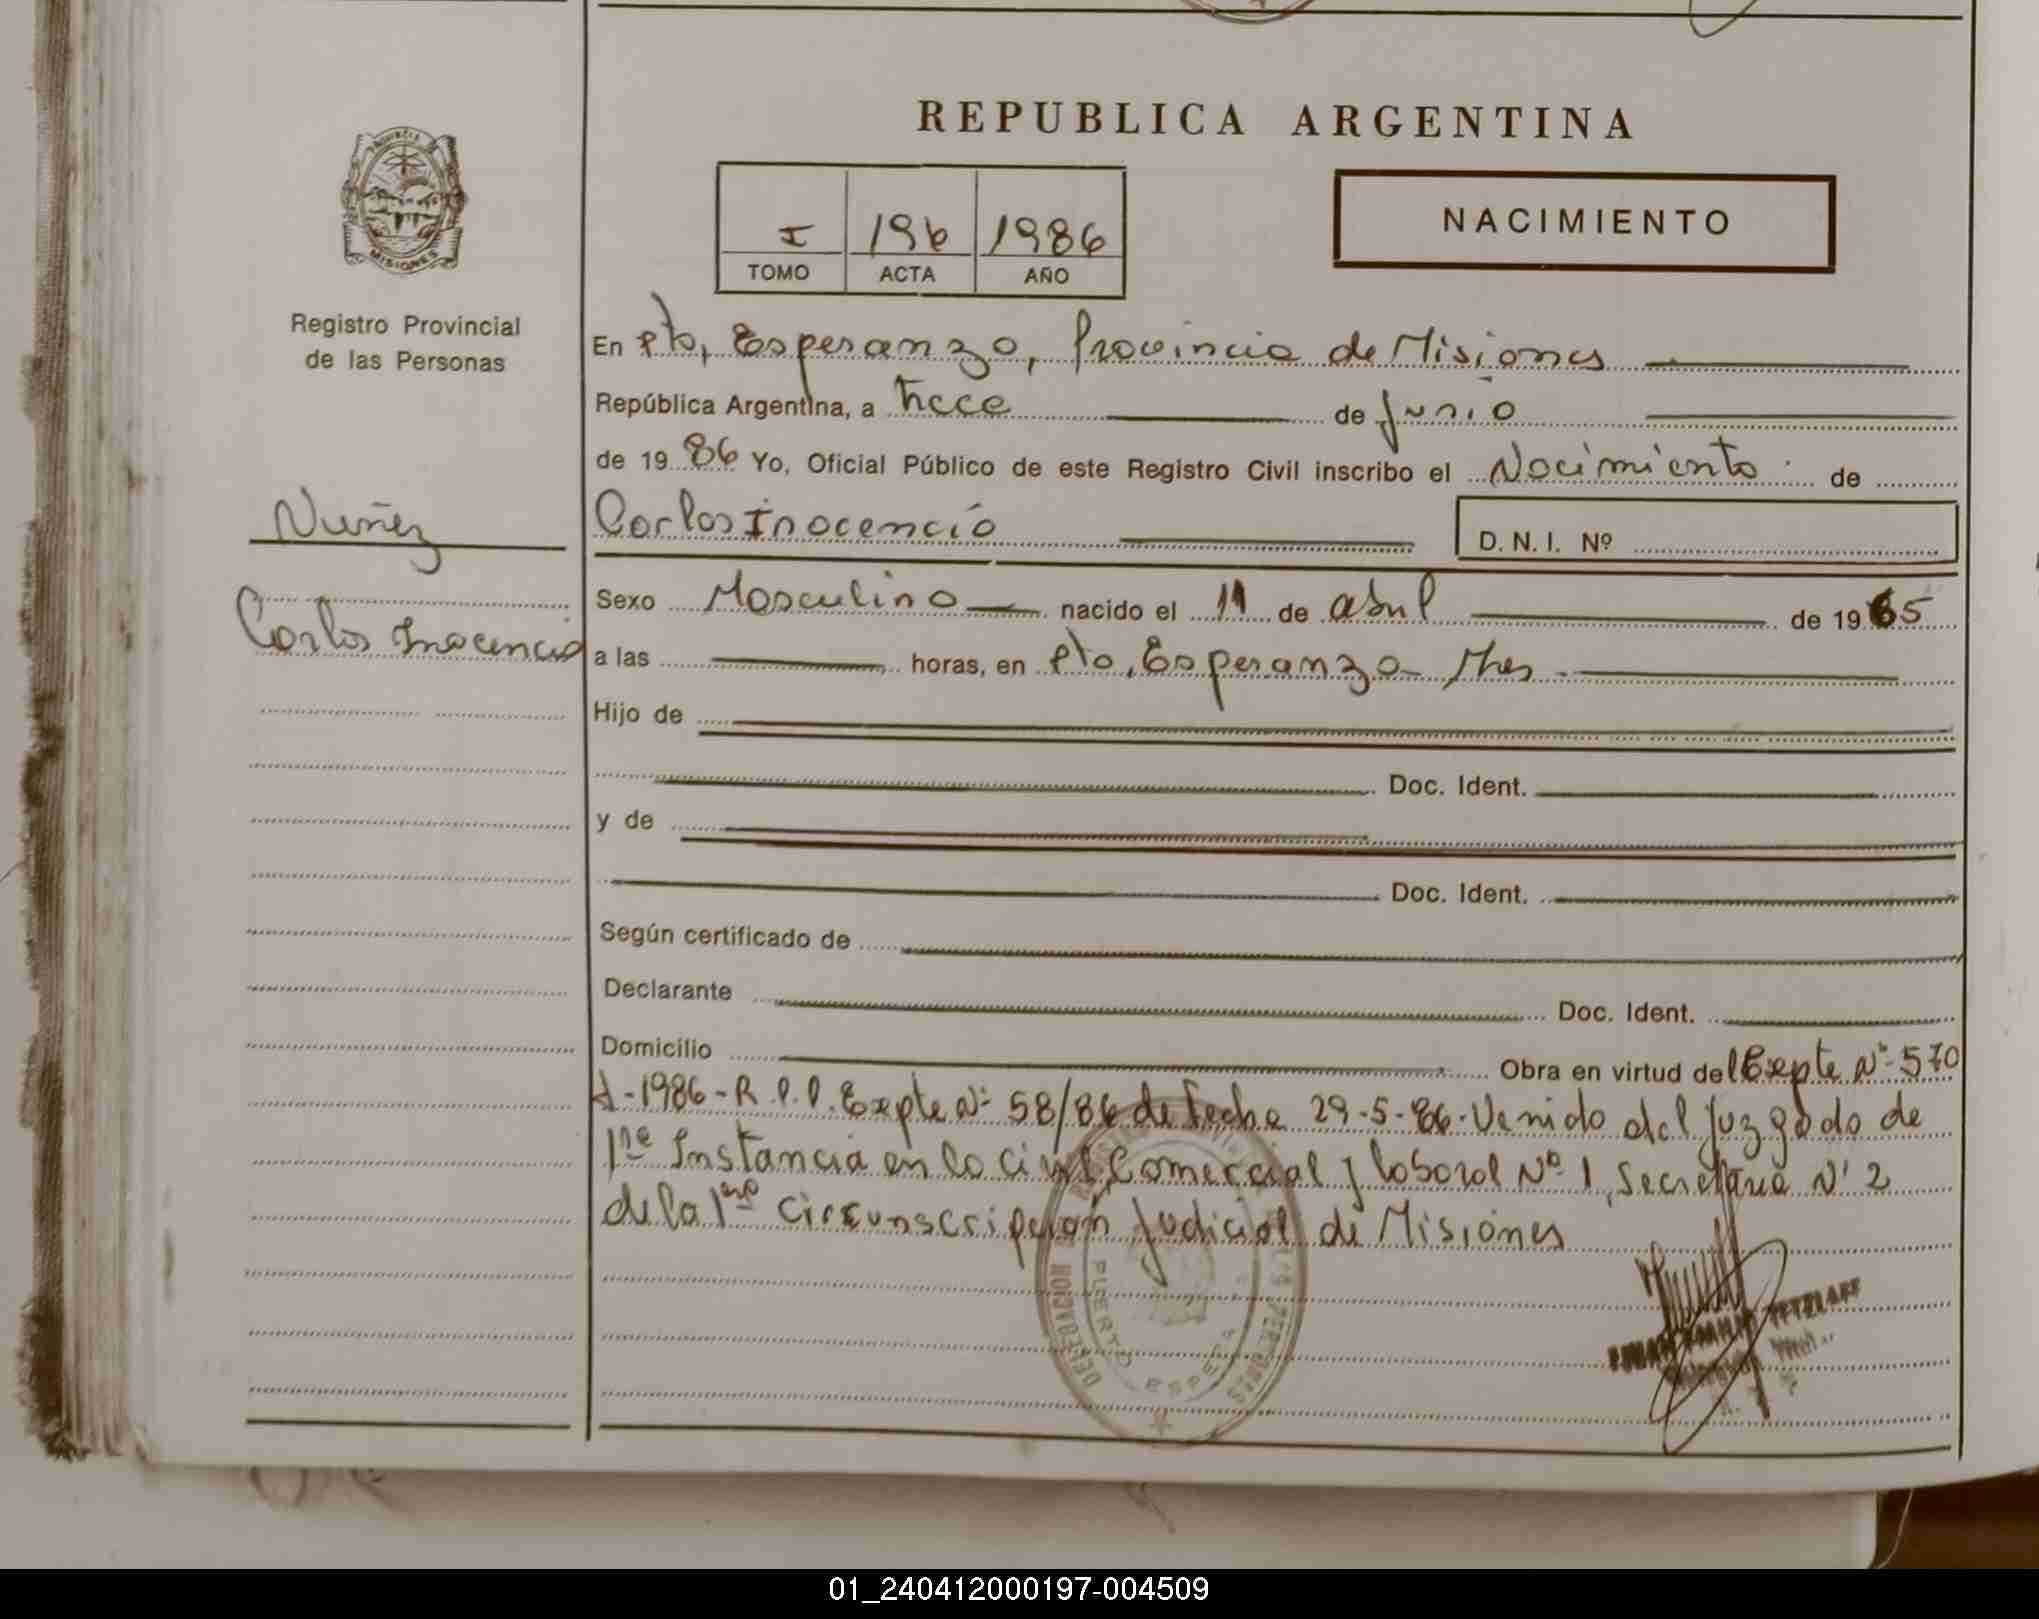 REPUBLICA ARGENTINA
I 196 1986
TOMO ACTA AÑO
NACIMIENTO
MISIONES
Registro Provincial
de las Personas
Nuñez
Carlos Inocencio
En Pto, Esperanza, Provincia de Misiones
República Argentina, a trece de Junio
de 1986 Yo, Oficial Público de este Registro Civil inscribo el Nacimiento de
Carlos Inocencio
D. N. I. Nº
Sexo Masculino nacido el 11 de abril de 1965
a las horas, en Pto, Esperanza - Mnes
Hijo de
Doc. Ident.
y de
Doc. Ident.
Según certificado de
Declarante Doc. Ident.
Domicilio Obra en virtud del Expte Nº 570
A-1986-R.P.P. Expte Nº 58/86 de fecha 29-5-86. Venido del Juzgado de
1ra Instancia en lo Civil, Comercial y laboral Nº 1, Secretaria Nº 2
de la 1era Circunscripcion Judicial de Misiones
DELEGACION
PUERTO
01_240412000197-004509